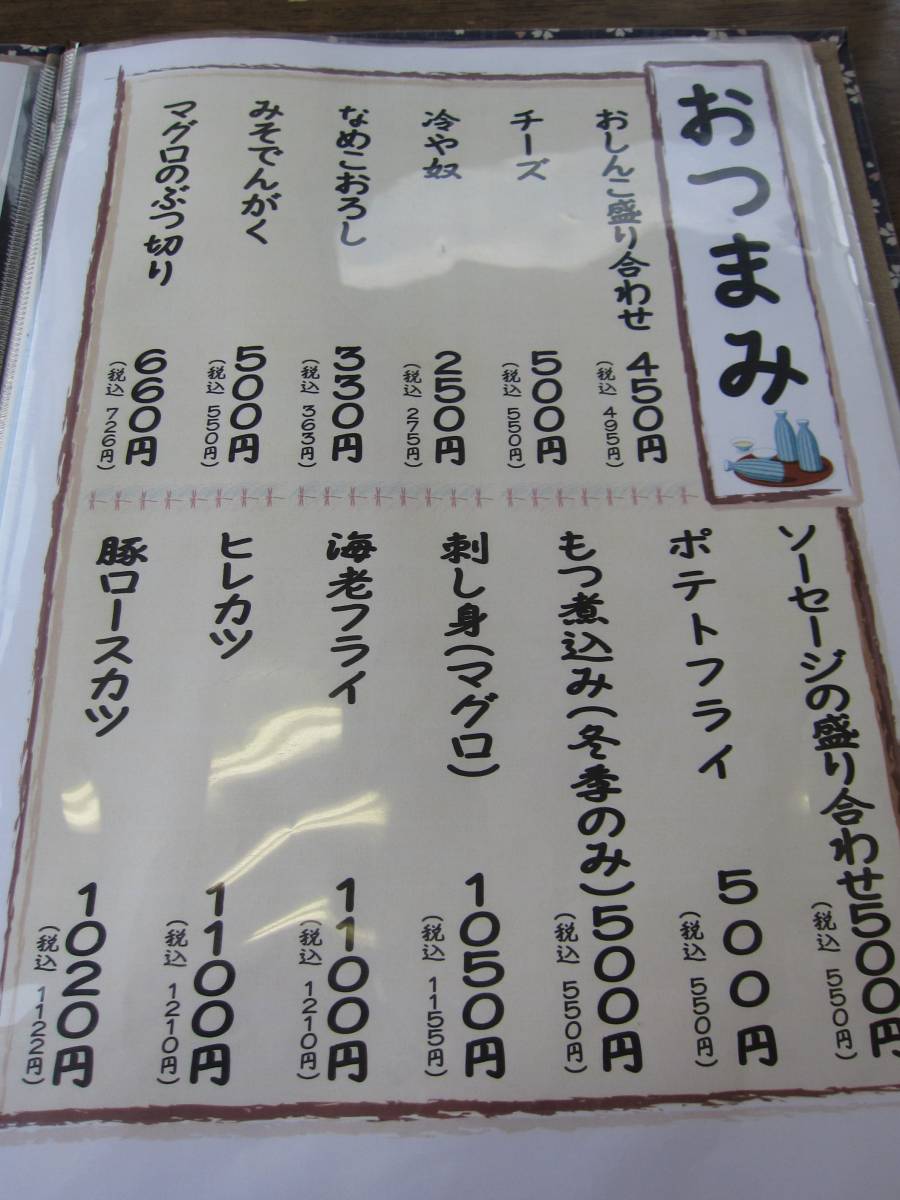 おつまみ
おしんこ盛り合わせ
450円
(税込 495円)
チーズ
500円
(税込 550円)
冷や奴
250円
(税込 275円)
なめこおろし
330円
(税込 363円)
みそでんがく
500円
(税込 550円)
マグロのぶつ切り
660円
(税込 726円)
ソーセージの盛り合わせ500円
(税込 550円)
ポテトフライ
500円
(税込 550円)
もつ煮込み(冬季のみ)500円
(税込 550円)
刺し身(マグロ)
1050円
(税込 1155円)
海老フライ
1100円
(税込 1210円)
ヒレカツ
1100円
(税込 1210円)
豚ロースカツ
1020円
(税込 1122円)